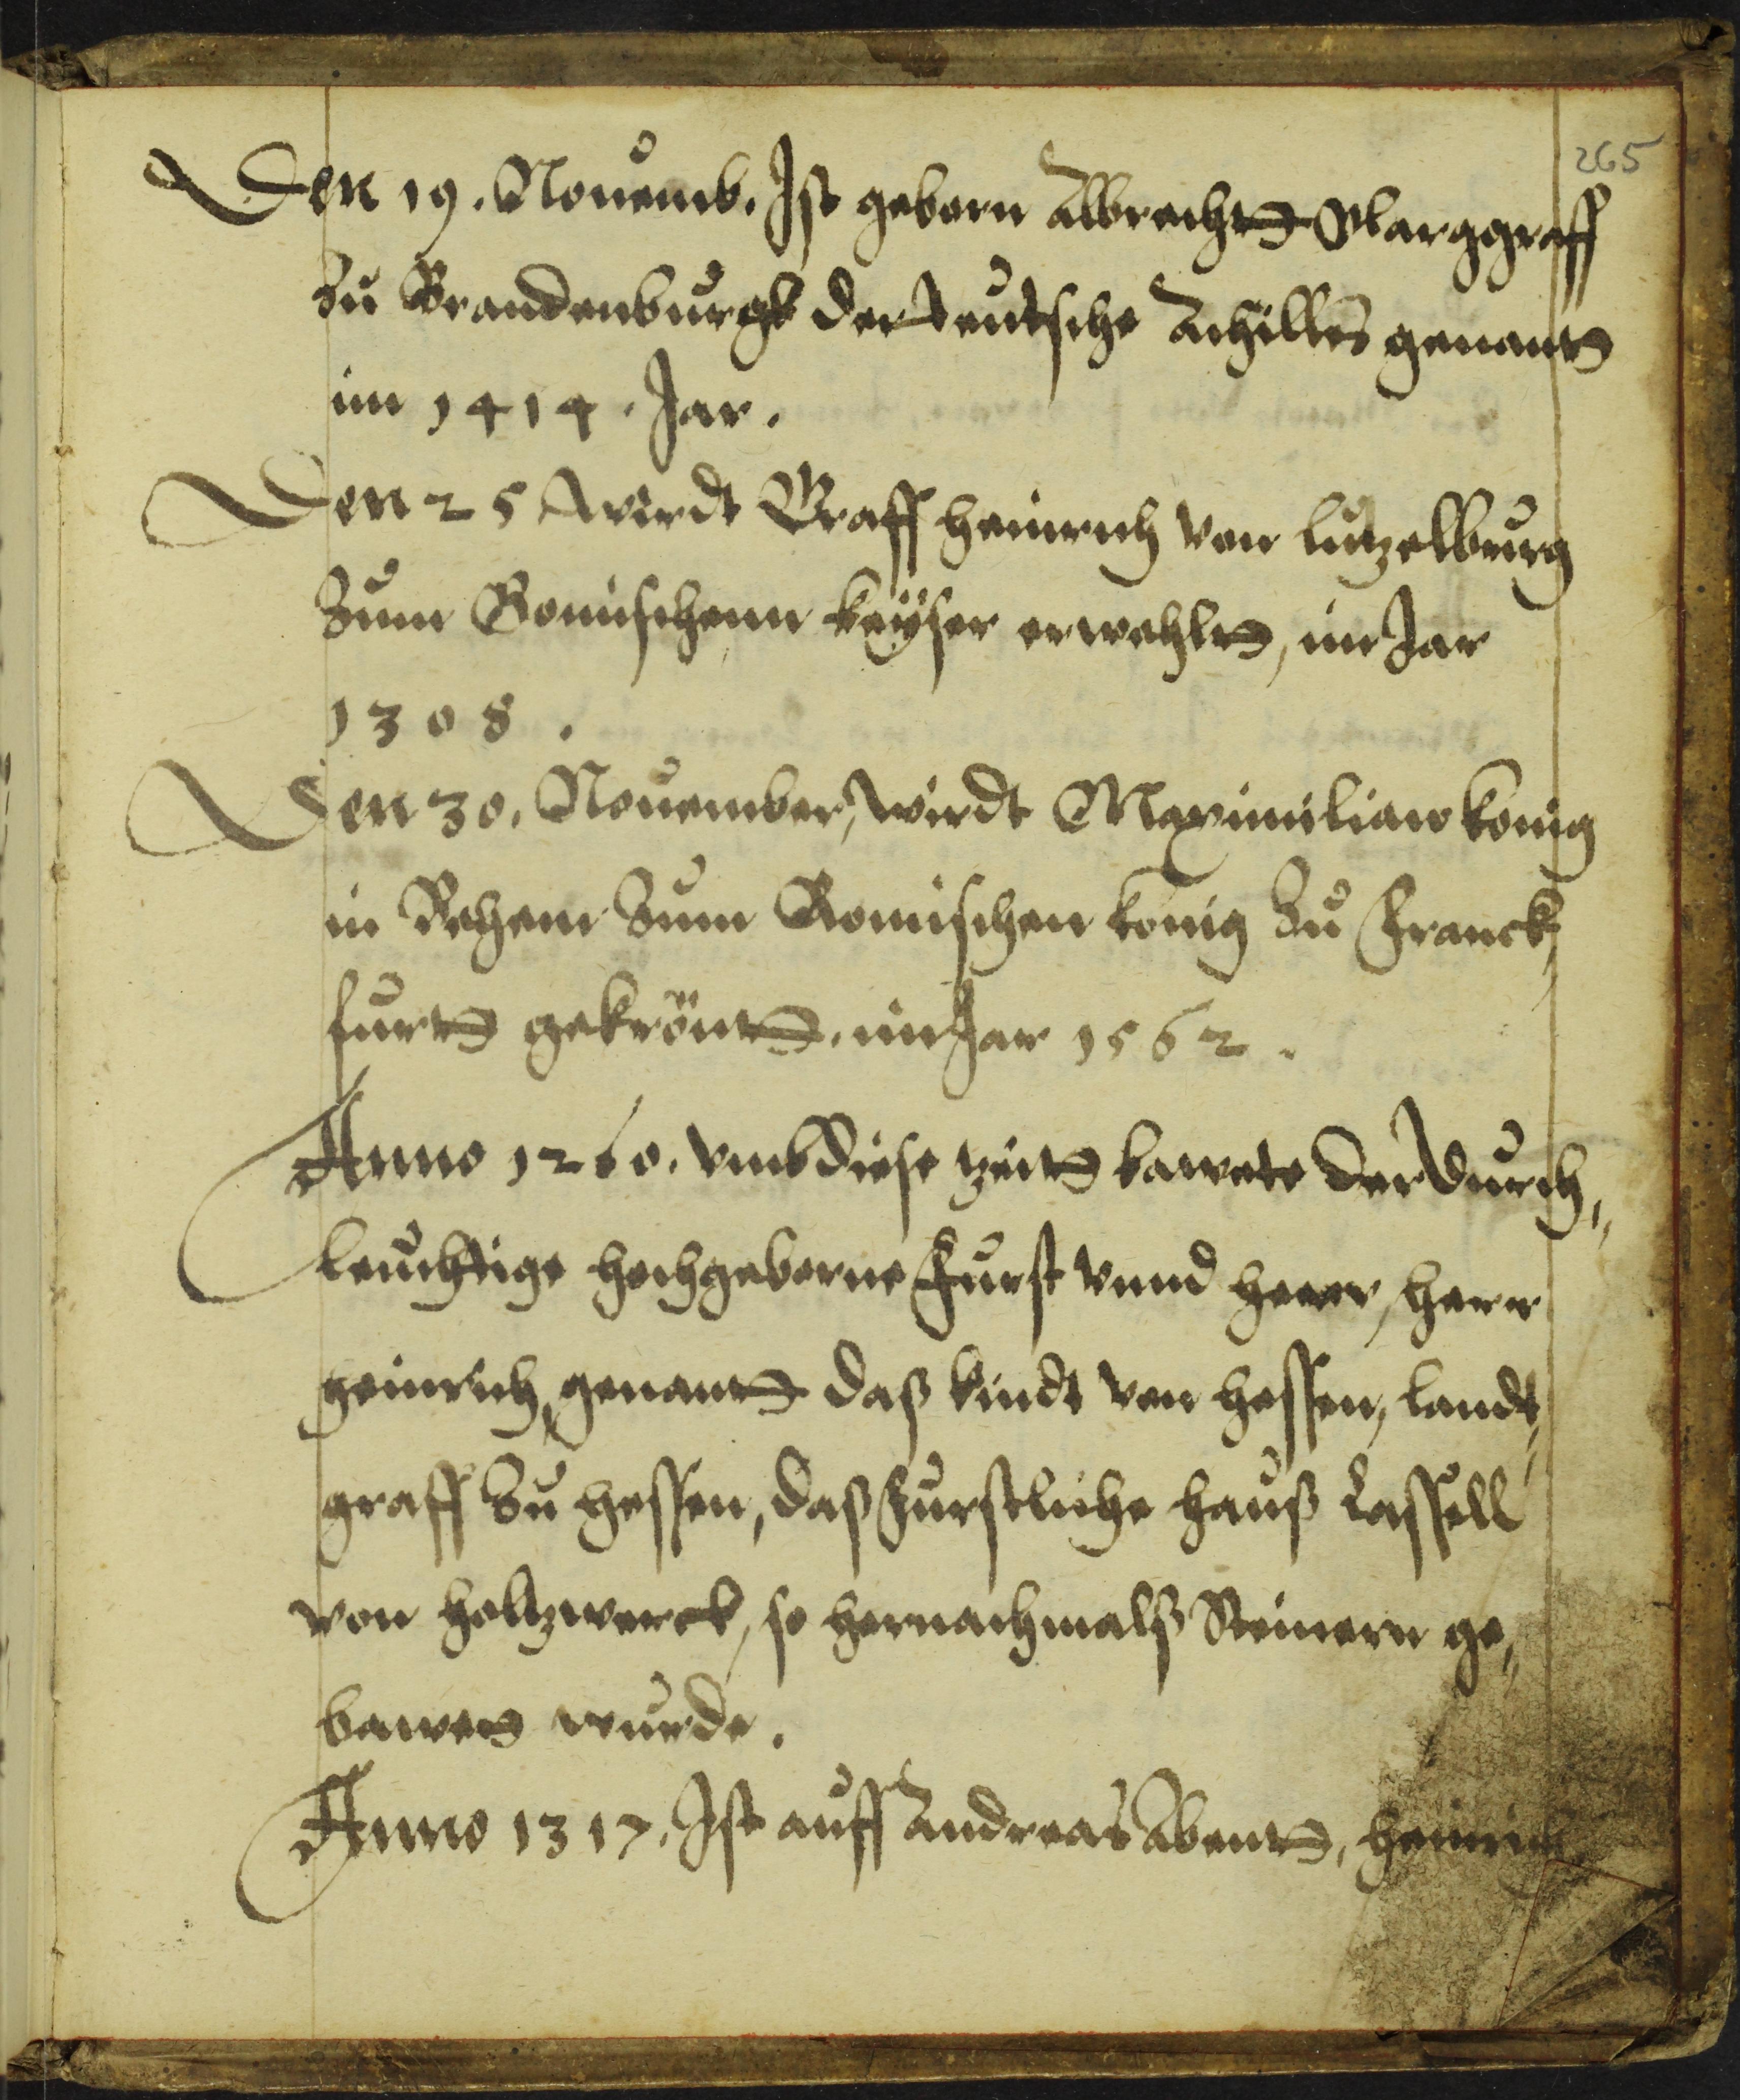 265
Den 19. Nouemb. Ist geborn Albrecht Marggraff
Zu Brandenburgk der Teutsche Achilles genant
im 1414. Jar.
Den 25 wirdt Graff Heinrich von Lutzelburg
Zum Romischenn keÿser erwehlt, im Jar
1308.
Den 30. Nouember, wirdt Maximilian konig
in Behem Zum Romischen konig Zu Franck,
furt gekrönt. im Jar 1562.
Anno 1260. vmb diese tzeit bawete der Durch,,
leuchtige hochgeborne Furst vnnd Herr, Herr
Heinrich, genant daß kindt von Hessen, Landt,
graff Zu Hessen, daß Furstliche Hauß Cassell
von holtzwerck, so hernachmalß Steinern ge,,
bawet wurde.
Anno 1317. Ist auff Andreas Abent, Heinrich